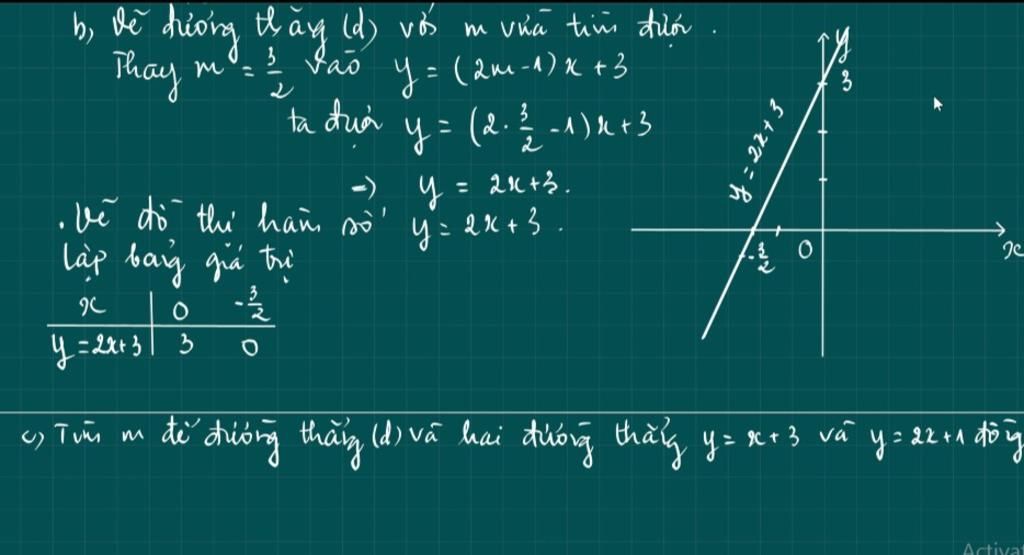 b, Vẽ đường thẳng (d) với m vừa tìm được.
Thay m = 3/2 vào y = (2m-1)x + 3
ta được y = (2. 3/2 -1)x+3
=> y = 2x+3.
. Vẽ đồ thị hàm số y = 2x + 3.
Lập bảng giá trị
x | 0 -3/2
y = 2x+3 | 3 0
y
3
y = 2x+3
-3/2
O
x
c) Tìm m để đường thẳng (d) và hai đường thẳng y = x + 3 và y = 2x + 1 đồng
Activa